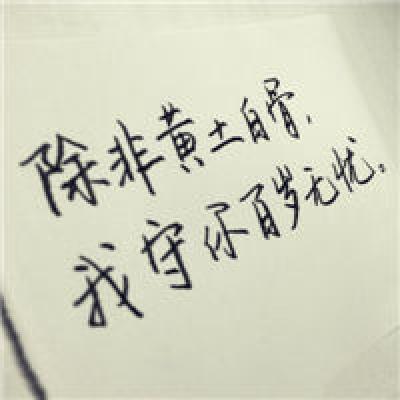 除非黄土白骨,
我守你百岁无忧。